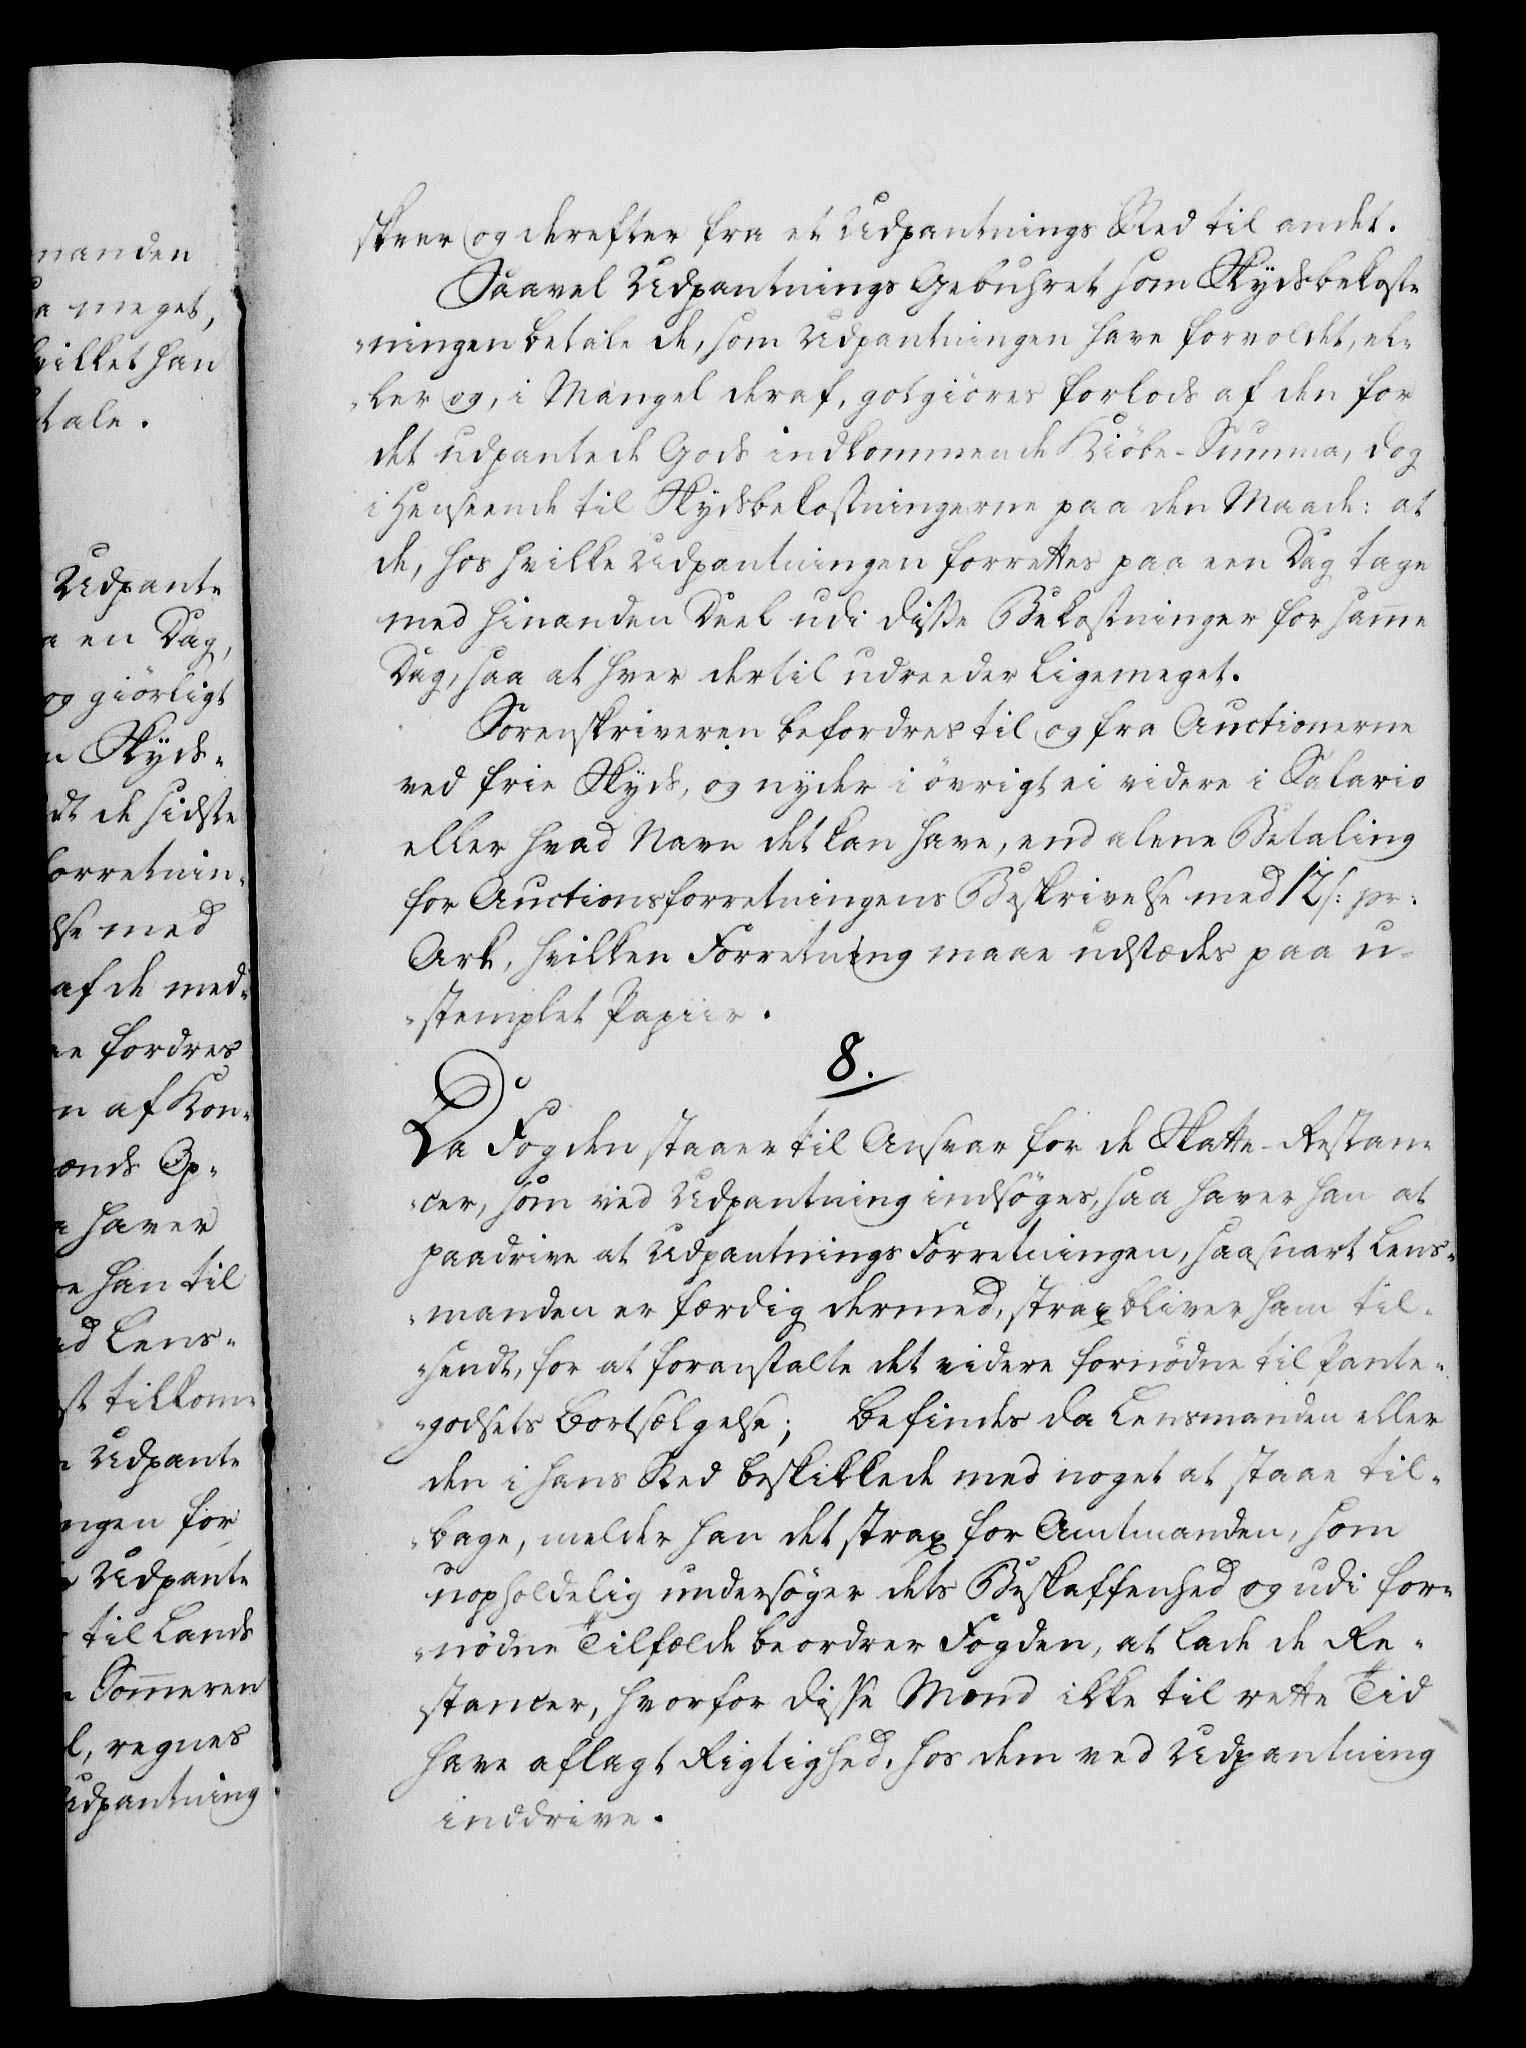 manden
a meget,
hvilket han
tale.
Udpante
a en Dag,
og giörligt
n Skyds-
dt de sidste
orretnin-
lse med
af de med-
ne fordres
n af Kon-
ænds Op-
a haver
e han til
d Lens-
st tilkom-
Udpante
ngen for
Udpante
til Lands
Someren
l, regnes
Udpantning
skeer og derefter fra et Udpantnings Sted til andet.
Saavel Udpantnings Gebuhret som Skydsbekoste
-ningen betale de, som Udpantningen have forvoldet, el-
-ler og, i Mangel deraf, gotgiöres forlods af den for
det udpantede Gods indkommende Kiöbe-Summa, dog
i Henseende til Skydsbekostningerne paa den Maade: at
de, hos hvilke Udpantningen forrettes paa een Dag tage
med hinanden Deel udi disse Bekostninger for same
Dag, saa at hver dertil udreeder ligemeget.
Sorenskriveren befordres til og fra Auctionerne
ved frie Skyds, og nyder i övrigt ei videre i Salario
eller hvad Navn det kan have, end alene Betaling
for Auctionsforretningens Beskrivelse med 12 s: pr:
Ark, hvilken Forretning maae udstædes paa u-
-stemplet Papiir.
8.
Da Fogden staaer til Ansvar for de Skatte-Restan-
-cer, som ved Udpantning indsöges, saa haver han at
paadrive at Udpantnings Forretningen, saasnart Lens-
-manden er færdig dermed, strax bliver ham til-
-sendt, for at foranstalte det videre fornödne til Pante-
-godsets Bortsælgelse; befindes da Lensmanden eller
den i hans Sted beskikkede med noget at staae til-
-bage, melder han det strax for Amtmanden, som
uopholdelig undersöger dets Beskaffenhed og udi for-
-nödne Tilfælde beordrer Fogden, at lade de Re-
stancer, hvorfor disse Mænd ikke til rette Tid
have aflagt Rigtighed, hos dem ved Udpantning
inddrive.